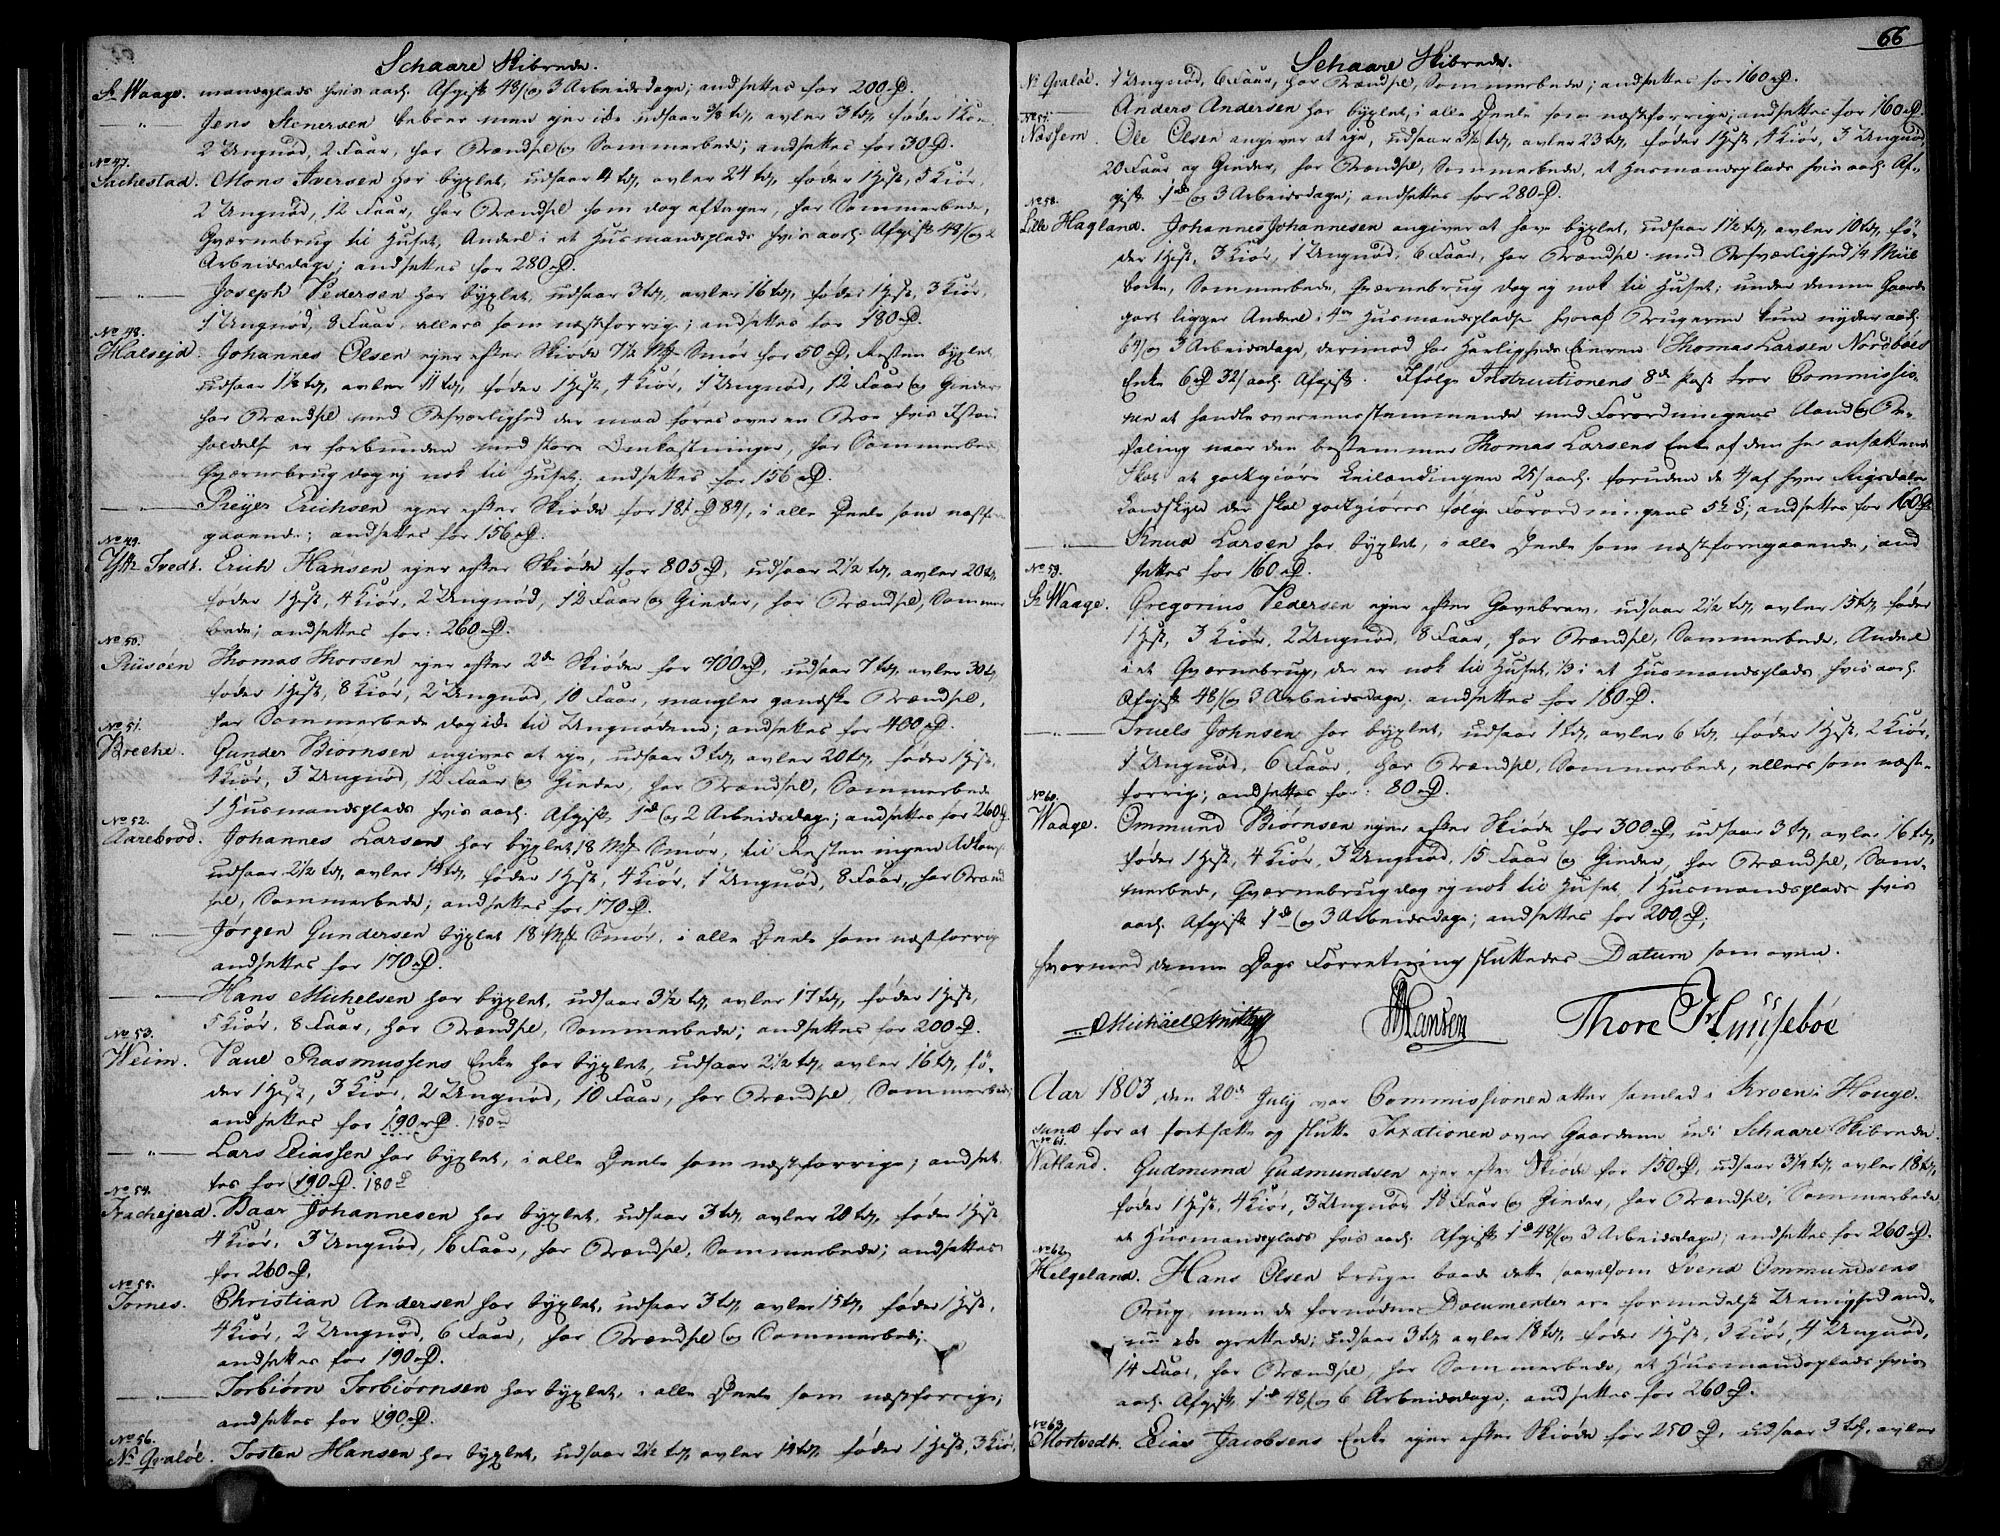 Schaare Skibrede.
Sr Waage. mandsplads hvis aarl. Afgift 48/ og 3 Arbeidsdage; andsættes for 200 rD.
— " — Jens Stenersen beboer men ejer ikke udsaar 3/8 tdr, avler 3 tdr, føder 1 Koe
2 Ungnød, 2 Faar, har Brændsel og Sommerbede; andsættes for 30 rD.
No 47.
Sachestad. Mons Iversen har byxlet, udsaar 4 tdr, avler 24 tdr, føder 1 Hest, 5 Kiør,
2 Ungnød, 12 Faar, har Brændsel som dog aftager, har Sommerbede,
Qværnebrug til Huset, Andeel i et Husmandsplads hvis aarl. Afgift 48/ og 2
Arbeidsdage; andsættes for 280 rD.
— " — Joseph Pedersen har byxlet, udsaar 3 tdr, avler 16 tdr, føder 1 Hest, 3 Kiør,
1 Ungnød, 8 Faar, ellers som næstforrige; andsættes for 180 rD.
No 48.
Halsejd. Johannes Olsen ejer efter Skiøde 7 1/2 Mrk Smør for 50 rD, Resten byxlet,
udsaar 1 1/2 tdr, avler 11 tdr, føder 1 Hest, 4 Kiør, 1 Ungnød, 12 Faar og Gieder
har Brændsel med Besværlighed der maa føres over en Broe hvis Istand
holdelse er forbunden med store Omkostninger, har Sommerbede
Qværnebrug dog ej nok til Huset; andsættes for 156 rD.
— " — Reyer Erichsen ejer efter Skiøde for 181 rD 84/, i alle Deele som næstfor
gaaende; andsættes for 156 rD.
No 49.
Ystr Tvedt. Erich Hansen ejer efter Skiøde for 805 rD, udsaar 2 1/2 tdr, avler 20 tdr,
føder 1 Hest, 4 Kiør, 2 Ungnød, 12 Faar og Gieder, har Brændsel, Sommer
bede; andsættes for 260 rD.
No 50.
Risøen Thomas Thorsen ejer efter 2de Skiøder for 700 rD, udsaar 7 tdr, avler 30 tdr
føder 1 Hest, 8 Kiør, 2 Ungnød, 10 Faar, mangler gandske Brændsel,
har Sommerbede dog ikke til Ungnødene; andsættes for 400 rD.
No 51.
Breche. Gunder Biørnsen angives at eje, udsaar 3 tdr, avler 20 tdr, føder 1 Hest,
4 Kiør, 3 Ungnød, 12 Faar og Gieder, har Brændsel, Sommerbede
1 Husmandsplads hvis aarl. Afgift 1 rd og 2 Arbeidsdage; andsættes for 260 rD
No 52.
Aarebrod. Johannes Larsen har byxlet 18 Mrk Smør, til Resten ingen Adkomst
udsaar 2 1/2 tdr, avler 14 tdr, føder 1 Hest, 4 Kiør, 1 Ungnød, 8 Faar, har Brænd
sel, Sommerbede; andsættes for 170 rD.
— " — Jørgen Gundersen byxlet 18 Mrk Smør, i alle Deele som næstforrige
andsættes for 170 rD.
— " — Hans Michelsen har byxlet, udsaar 3 1/2 tdr, avler 17 tdr, føder 1 Hest,
5 Kiør, 8 Faar, har Brændsel, Sommerbede; andsættes for 200 rD.
No 53.
Weim. Paul Rasmussens Enke har byxlet, udsaar 2 1/2 tdr, avler 16 tdr, fø-
der 1 Hest, 3 Kiør, 2 Ungnød, 10 Faar, har Brændsel, Sommerbede
andsættes for 190 rD. 180 rd
— " — Lars Eliassen har byxlet, i alle Deele som næstforrige; andsæt
tes for 190 rD. 180 rd
No 54.
Frachejerd. Baar Johannesen har byxlet, udsaar 3 tdr, avler 20 tdr, føder 1 Hest
4 Kiør, 3 Ungnød, 16 Faar, har Brændsel, Sommerbede; andsættes
for 260 rD.
No 55.
Tornes. Christian Andersen har byxlet, udsaar 3 tdr, avler 15 tdr, føder 1 Hest,
4 Kiør, 2 Ungnød, 6 Faar, har Brændsel og Sommerbede;
andsættes for 190 rD.
— " — Torbiørn Torbiørnsen har byxlet, i alle Deele som næstforrige;
andsættes for 190 rD.
No 56.
Nr Qvaløe. Tosten Hansen har byxlet, udsaar 2 1/2 tdr, avler 14 tdr, føder 1 Hest, 3 Kiør,
66
Schaare Skibrede.
Nr Qvaløe. 1 Ungnød, 6 Faar, har Brændsel, Sommerbede; andsættes for 160 rD.
— " — Anders Andersen har byxlet, i alle Deele som næstforrige; andsættes for 160 rD.
No 57.
Nossem. Ole Olsen angiver at eje, udsaar 3 1/2 tdr, avler 23 tdr, føder 1 Hest, 4 Kiør, 3 Ungnød,
20 Faar og Gieder, har Brændsel, Sommerbede, et Husmandsplads hvis aarl. Af-
gift 1 rd og 3 Arbeidsdage; andsættes for 280 rD.
No 58.
Lille Hagland. Johannes Johannesen angiver at have byxlet, udsaar 1 1/2 tdr, avler 10 tdr, fø-
der 1 Hest, 3 Kiør, 1 Ungnød, 6 Faar, har Brændsel med Besværlighed 1/4 Miil
borte, Sommerbede, Qværnebrug dog ej nok til Huset; under denne Gaards
part ligger Andeel i 4re Husmandspladse hvoraf Brugerne kun nyder aarl.
64/ og 3 Arbeidsdage, derimod har Herligheds Eieren Thomas Larsen Nordbøes
Enke 6 rD 32/ aarl. Afgift. Ifølge Instructionens 8de Post troer Commissio-
nen at handle overeensstemmende med Forordningens Aand og Be-
faling naar den bestemmer Thomas Larsens Enke af den her ansættende
Skat at godtgiøre Leilændingen 25/ aarl. foruden de 4/ af hver Rigsdaler
Landskyld der skal godtgiøres følge Forordningens 5te §; andsættes for 160 rD
— " — Knud Larsen har byxlet, i alle Deele som næstforegaaende, and
sættes for 160 rD.
No 59.
Sr Waage. Gregorius Pedersen ejer efter Gavebrev, udsaar 2 1/2 tdr, avler 15 tdr, føder
1 Hest, 3 Kiør, 2 Ungnød, 8 Faar, har Brændsel, Sommerbede, Andeel
i et Qværnebrug, der er nok til Huset, 1/3 i et Husmandsplads hvis aarl.
Afgift 48/ og 3 Arbeidsdage; andsættes for 180 rD.
— " — Truels Johnsen har byxlet, udsaar 1 tdr, avler 6 tdr, føder 1 Hest, 2 Kiør,
1 Ungnød, 6 Faar, har Brændsel, Sommerbede, ellers som næst-
forrige; andsættes for 80 rD.
No 60.
Waage. Ommund Biørnsen ejer efter Skiøde for 300 rD, udsaar 3 tdr, avler 16 tdr,
føder 1 Hest, 4 Kiør, 3 Ungnød, 15 Faar og Gieder, har Brændsel, Som-
merbede, Qværnebrug dog ej nok til Huset, 1 Husmandsplads hvis
aarl. Afgift 1 rd og 3 Arbeidsdage; andsættes for 200 rD;
hvormed denne Dags Forretning sluttedes Datum som oven.
Michäel Hansen Thore Huuseböe
Aar 1803, den 20de July var Commissionen atter samled i Kroen i Houge-
sund for at fortsætte og slutte Taxationen over Gaardene udi Schaare Skibrede.
No 61.
Watland. Gudmund Gudmundsen ejer efter Skiøde for 150 rD, udsaar 3 1/4 tdr, avler 18 tdr,
føder 1 Hest, 4 Kiør, 3 Ungnød, 18 Faar og Gieder, har Brændsel, Sommerbede
et Husmandsplads hvis aarl. Afgift 1 rd 48/ og 3 Arbeidsdage; andsættes for 260 rD.
No 62.
Helgeland. Hans Olsen bruger baade dette saavelsom Svend Ommundsens
Brug, men de fornødne Documenter ere formedelst Uenighed end-
nu ikke oprettede; udsaar 3 tdr, avler 18 tdr, føder 1 Hest, 3 Kiør, 4 Ungnød,
14 Faar, har Brændsel, har Sommerbede, et Husmandsplads hvis
aarl. Afgift 1 rd 48/ og 6 Arbeidsdage; andsættes for 260 rD.
No 63.
Mortvedt. Elias Jacobsens Enke ejer efter Skiøde for 250 rD, udsaar 3 tdr, avler